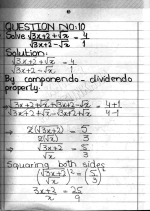 QUESTION NO:10
Solve √3x+2 + √x / √3x+2 - √x = 4/1
Solution:
√3x+2 + √x / √3x+2 - √x = 4/1
By componendo-dividendo
property.
⇒ √3x+2 + √x + √3x+2 - √x / √3x+2 + √x - √3x+2 + √x = 4+1 / 4-1
⇒ 2(√3x+2) / 2(√x) = 5/3
⇒ √3x+2 / √x = 5/3
Squaring both sides
(√3x+2 / √x)² = (5/3)²
3x+2 / x = 25/9